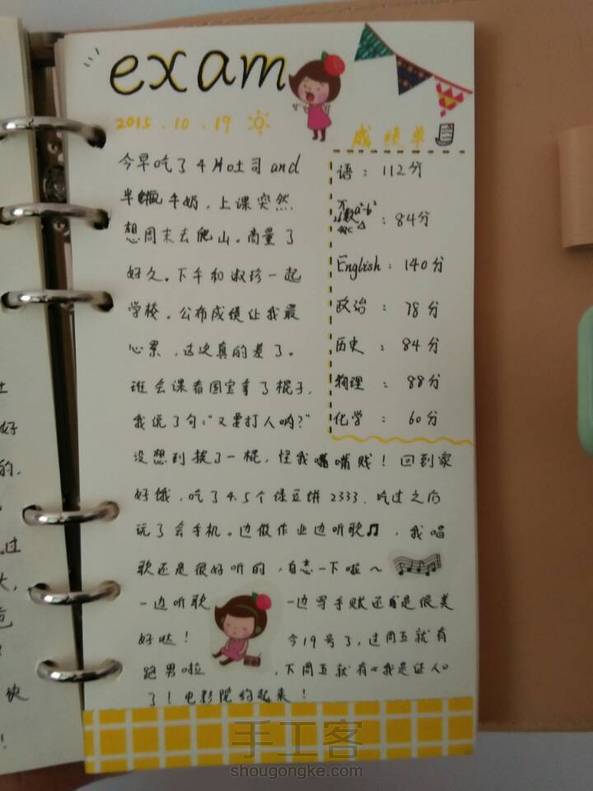 exam
2015.10.19
成绩单
今早吃了4片吐司and
半瓶牛奶，上课突然
想周末去爬山。商量了
好久。下午和淑珍一起
学校。公布成绩让我最
心累，这次真的差了。
班会课看国宝拿了棍子，
我说了句："又要打人哟？"
没想到挨了一棍，怪我嘴嘴贱！回到家
好饿，吃了4.5个绿豆饼2333，吃过之后
玩了会手机。边做作业边听歌♫，我唱
歌还是很好听的，自恋一下啦～
一边听歌 一边写手账还是很美
好哒！ 今19号了，这周五就有
跑男啦，下周五就有《我是证人》
了！电影院约起来！
语：112分
数：84分
English：140分
政治：78分
历史：84分
物理：88分
化学：60分
手工客
shougongke.com